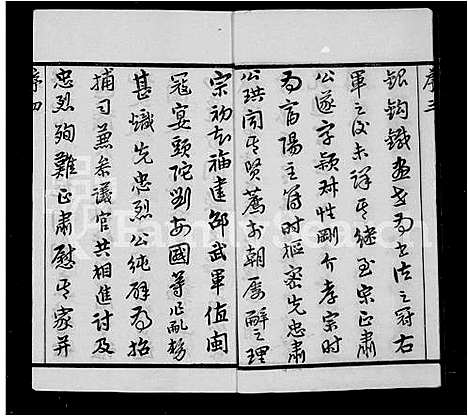 序三
銀鈎鐵畫世為書法之冠右
軍之後未詳其継至宋正肅
公遂字頴叔性剛介孝宗時
為富陽主簿時樞密先忠肅
公珙聞其賢薦於朝屢辭之理
宗初知福建邵武軍值閩
冦宴頭陀劉安國等作亂勢
甚熾先忠烈公純辟為招
捕司兼叅議官共相進討及
忠烈殉難正肅慰其家并
序四
FamilySearch